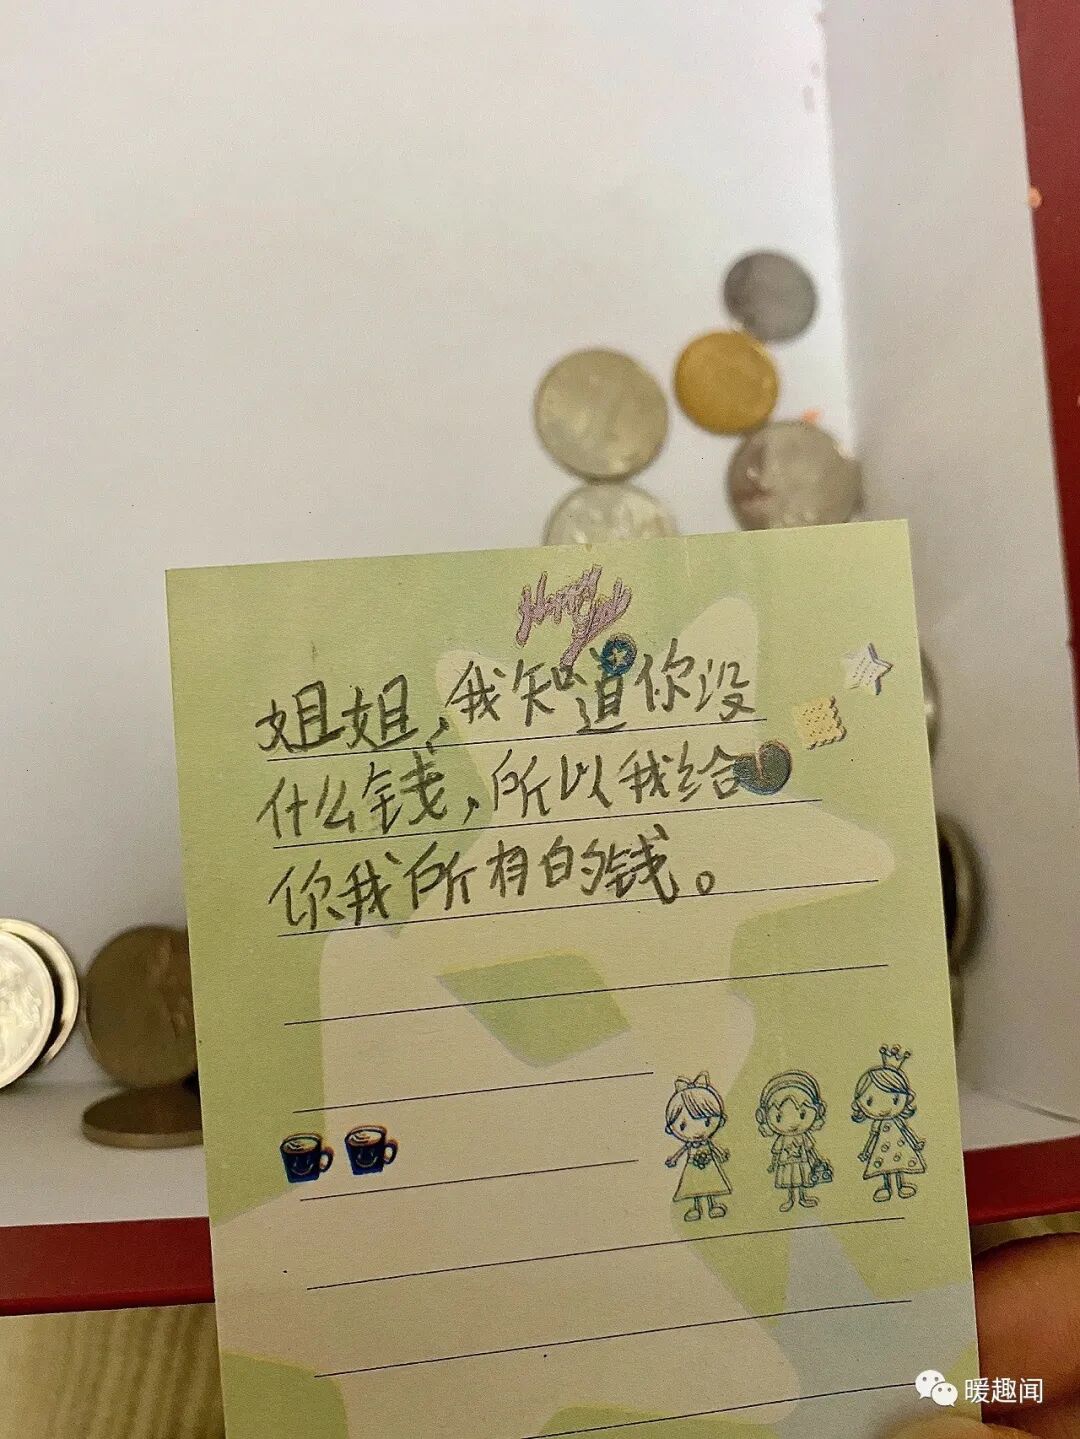 Happy
姐姐,我知道你没
什么钱,所以我给
你我所有的钱。
暖趣闻